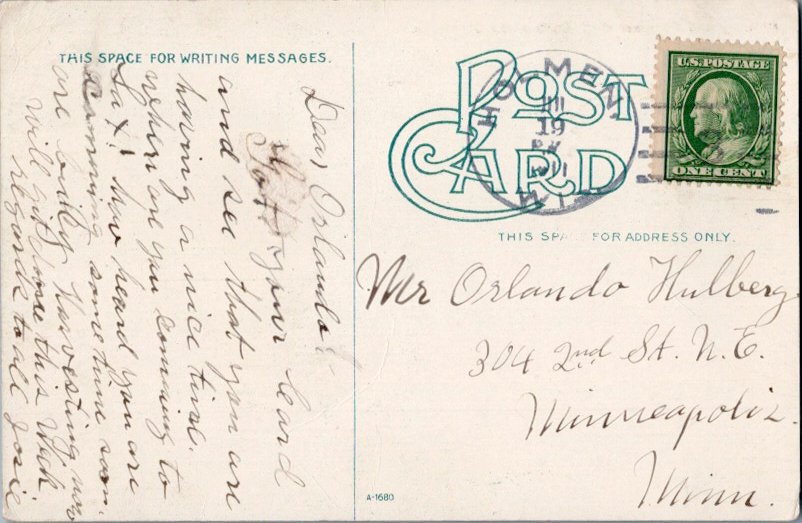 THIS SPACE FOR WRITING MESSAGES.
Dear Orlando!
Got your card
and see that you are
having a nice time.
when are you comming to
Lax! have heard you are
comming some time soon.
are busy harvesting now
will get done this week
regards to all Josie
POST CARD
HOLMEN
JUL
19
PM
1911
WIS
U.S. POSTAGE
ONE CENT
THIS SPACE FOR ADDRESS ONLY.
Mr Orlando Hulberg
304 2nd St. N.E.
Minneapolis.
Minn.
A-1680